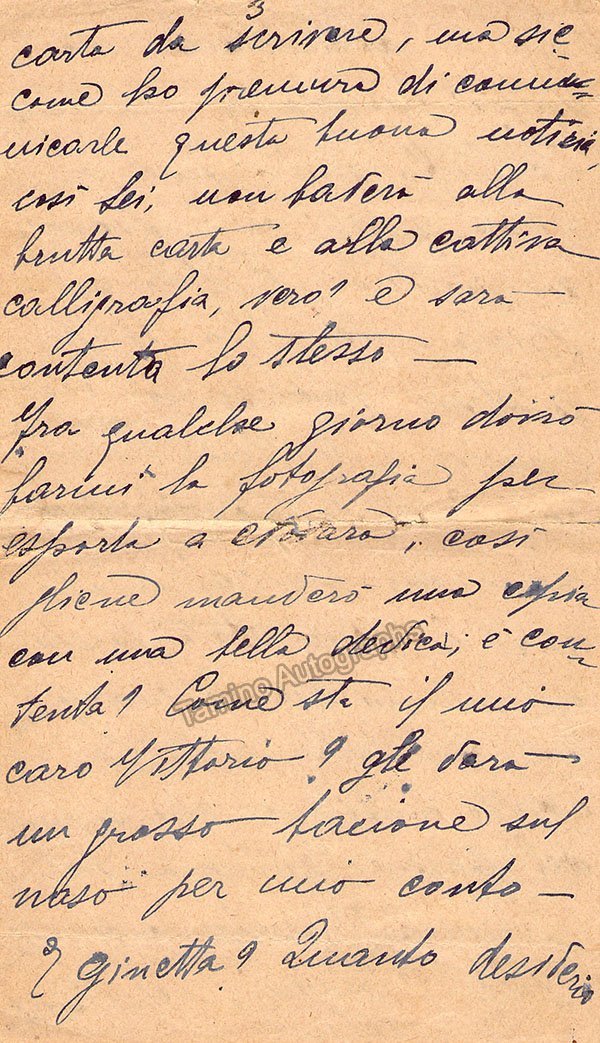 3
carta da scrivere, ma sic=
come ho premura di comu=
nicarle questa buona notizia,
così Lei, non baderà alla
brutta carta e alla cattiva
calligrafia, vero? e sarà
contenta lo stesso —
Fra qualche giorno dovrò
farmi la fotografia per
esporla a , così
gliene manderò una copia
con una bella dedica, è con=
tenta? Come sta il mio
caro Vittorio? gli darà
un grosso bacione sul
naso per mio conto —
E Ginetta? Quanto desiderio
Tamino Autographs